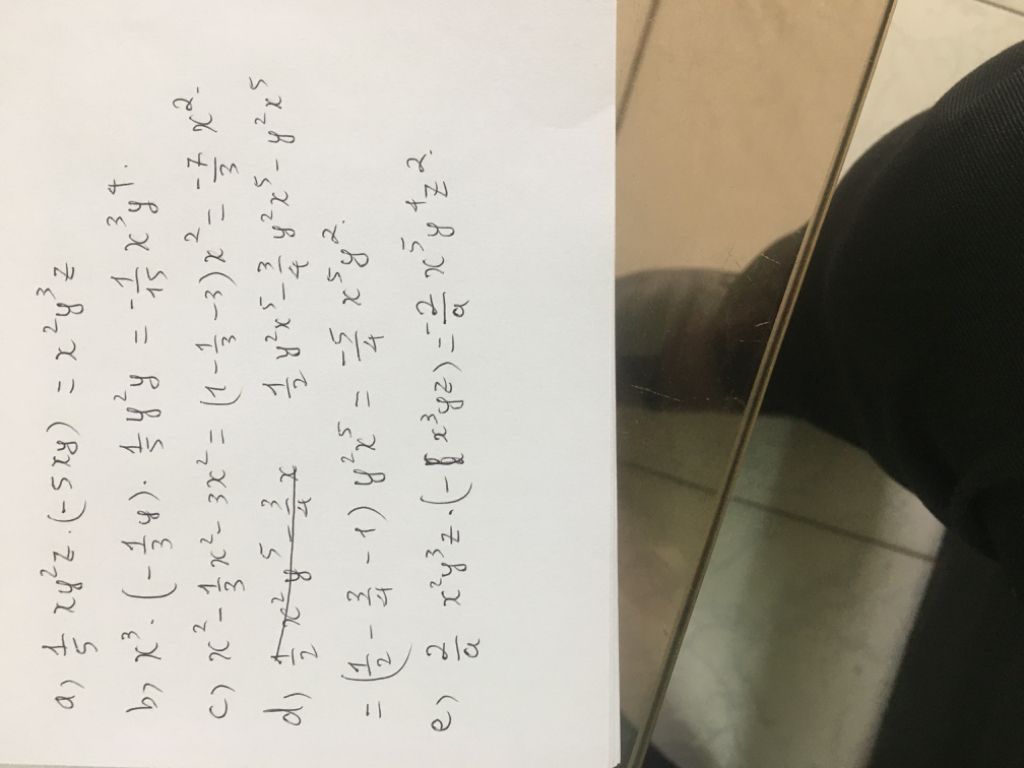 a) 1/5 xy²z . (-5xy) = x²y³z
b) x³ . (-1/3 y) . 1/5 y²y = -1/15 x³y⁴.
c) x² - 1/3 x² - 3x² = (1 - 1/3 - 3)x² = -7/3 x².
d) 1/2 x²y⁵ - 3/4 x 1/2 y²x⁵ - 3/4 y²x⁵ - y²x⁵
= (1/2 - 3/4 - 1) y²x⁵ = -5/4 x⁵y².
e) 2/a x²y³z . (- x³yz) = -2/a x⁵y⁴z².